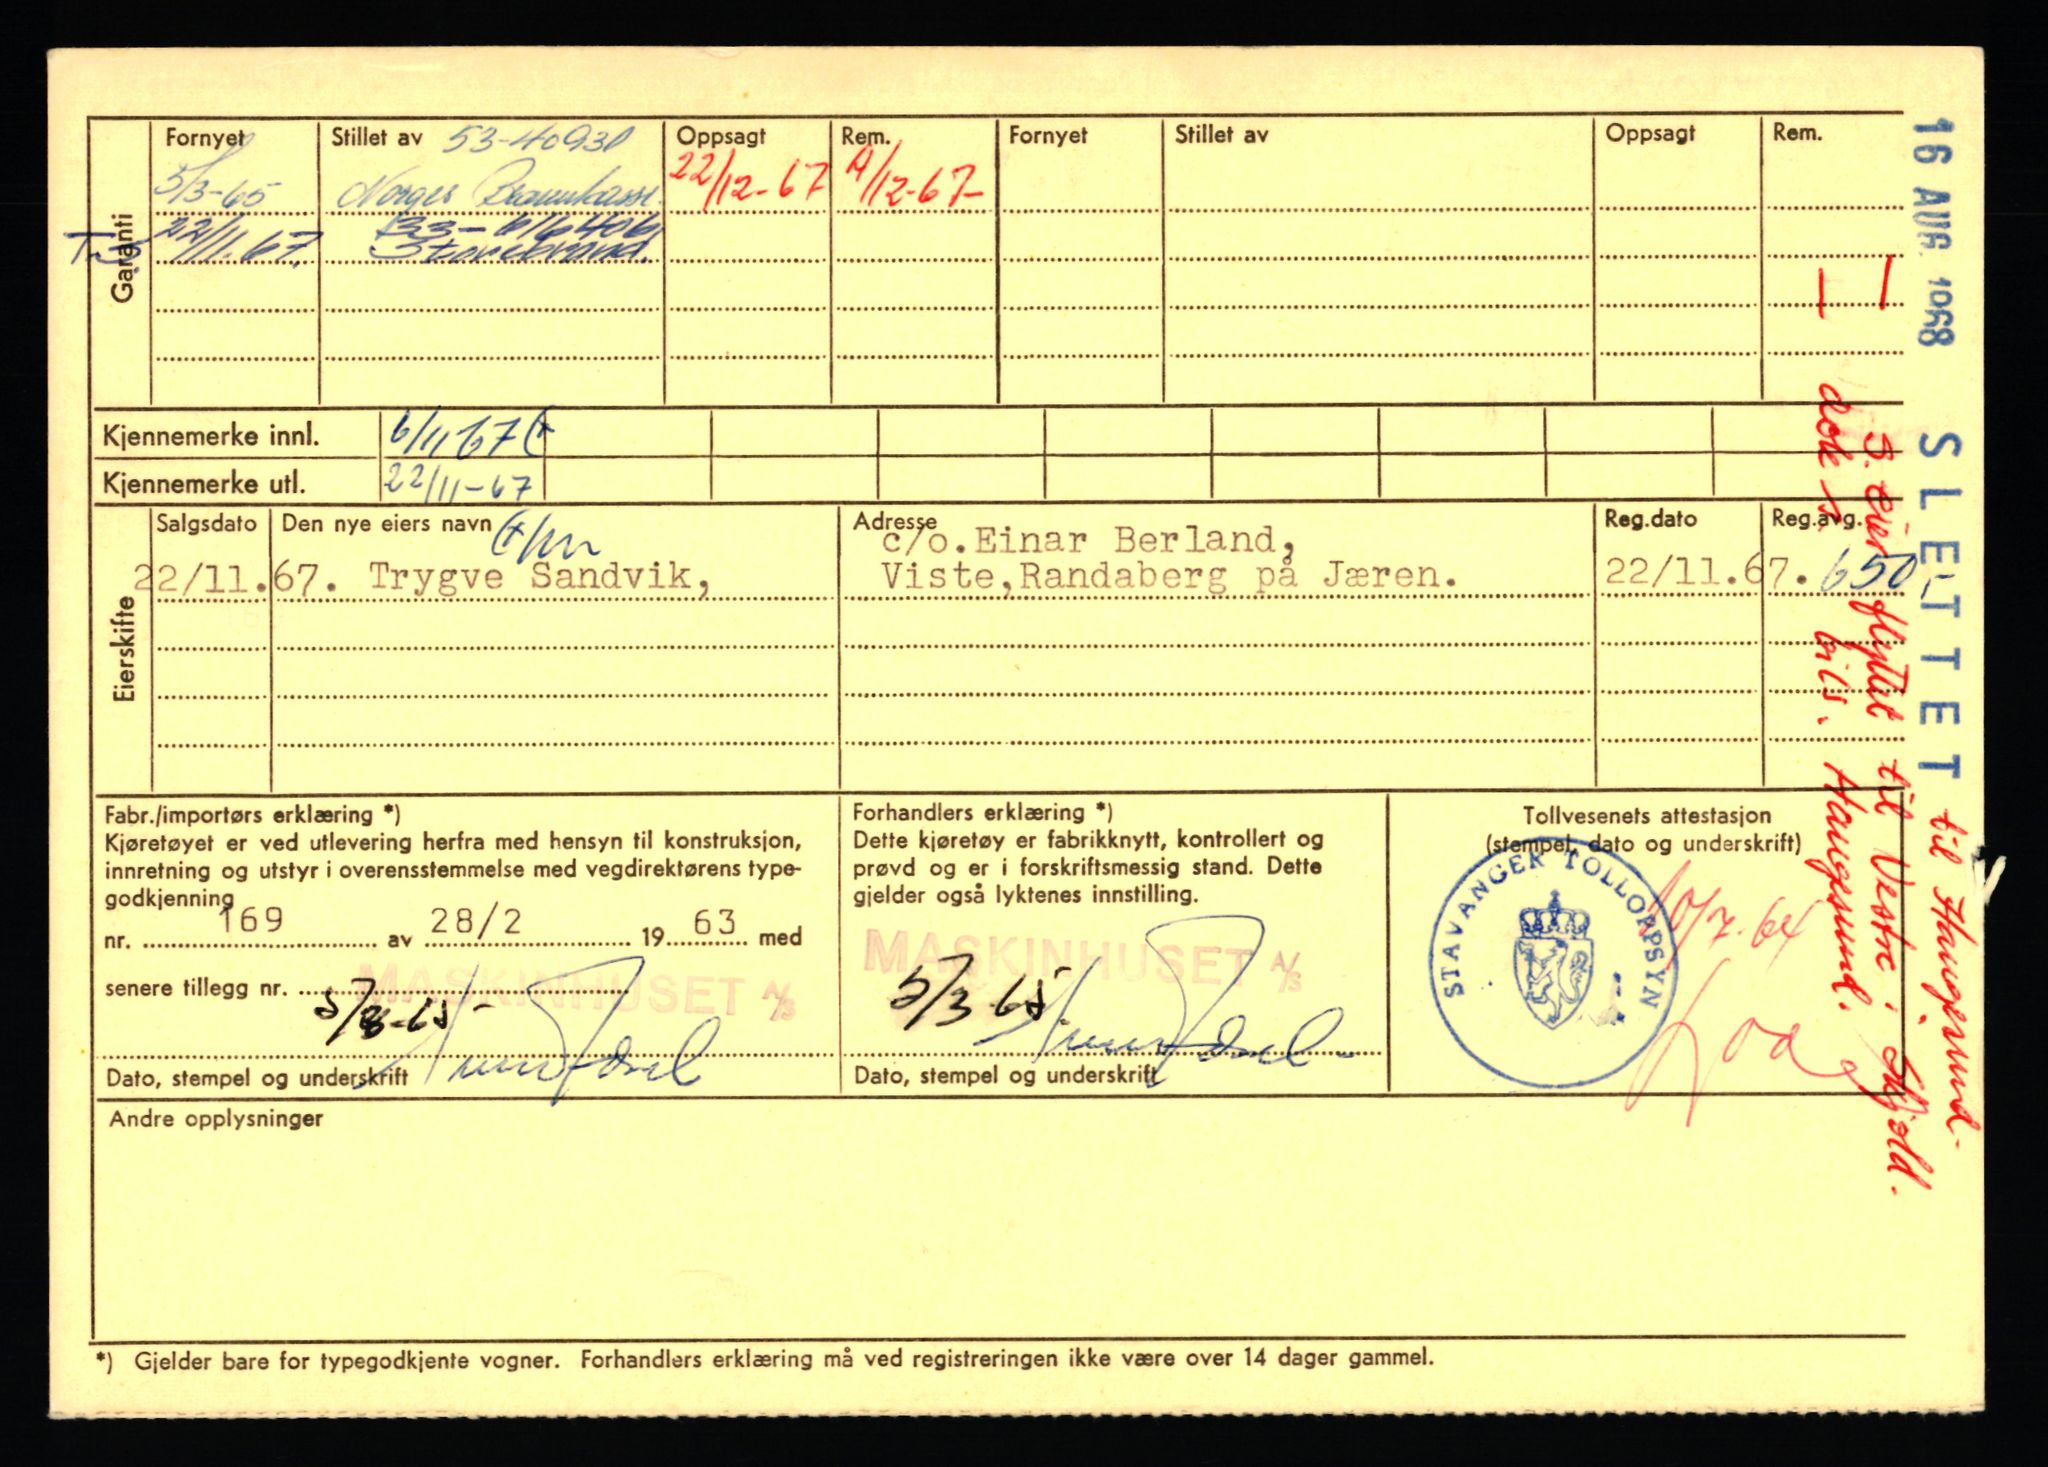 Garanti
Fornyet Stillet av 53-40930 Oppsagt Rem. Fornyet Stillet av Oppsagt Rem.
5/3-65 Norges Brannkasse. 22/12-67 /12-67-
22/11.67. 33-616406
Storebrand.
Kjennemerke innl. 6/11 67 (x
Kjennemerke utl. 22/11-67
Eierskifte
Salgsdato Den nye eiers navn (x/ Adresse Reg.dato Reg.avg.
c/o.Einar Berland,
22/11.67. Trygve Sandvik, Viste,Randaberg på Jæren. 22/11.67. 650,-
Fabr./importørs erklæring *)
Kjøretøyet er ved utlevering herfra med hensyn til konstruksjon,
innretning og utstyr i overensstemmelse med vegdirektørens type-
godkjenning
nr. 169 av 28/2 1963 med
senere tillegg nr.
MASKINHUSET A/S
5/3-65-
Dato, stempel og underskrift
Forhandlers erklæring *)
Dette kjøretøy er fabrikknytt, kontrollert og
prøvd og er i forskriftsmessig stand. Dette
gjelder også lyktenes innstilling.
MASKINHUSET A/S
5/3-65
Dato, stempel og underskrift
Tollvesenets attestasjon
(stempel, dato og underskrift)
STAVANGER TOLLOPPSYN
Andre opplysninger
*) Gjelder bare for typegodkjente vogner. Forhandlers erklæring må ved registreringen ikke være over 14 dager gammel.
16 AUG. 1968 SLETTET til Haugesund-
- S. eier flyttet til Vestre i Skjold.
- dok s. bils. Haugesund.